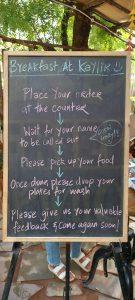 Breakfast At Kaylix
Place Your order
at the counter
Wait for your name
to be called out
Please pick up your food
Once done please drop your
plates for wash
Please give us your valuable
feedback & Come again soon!